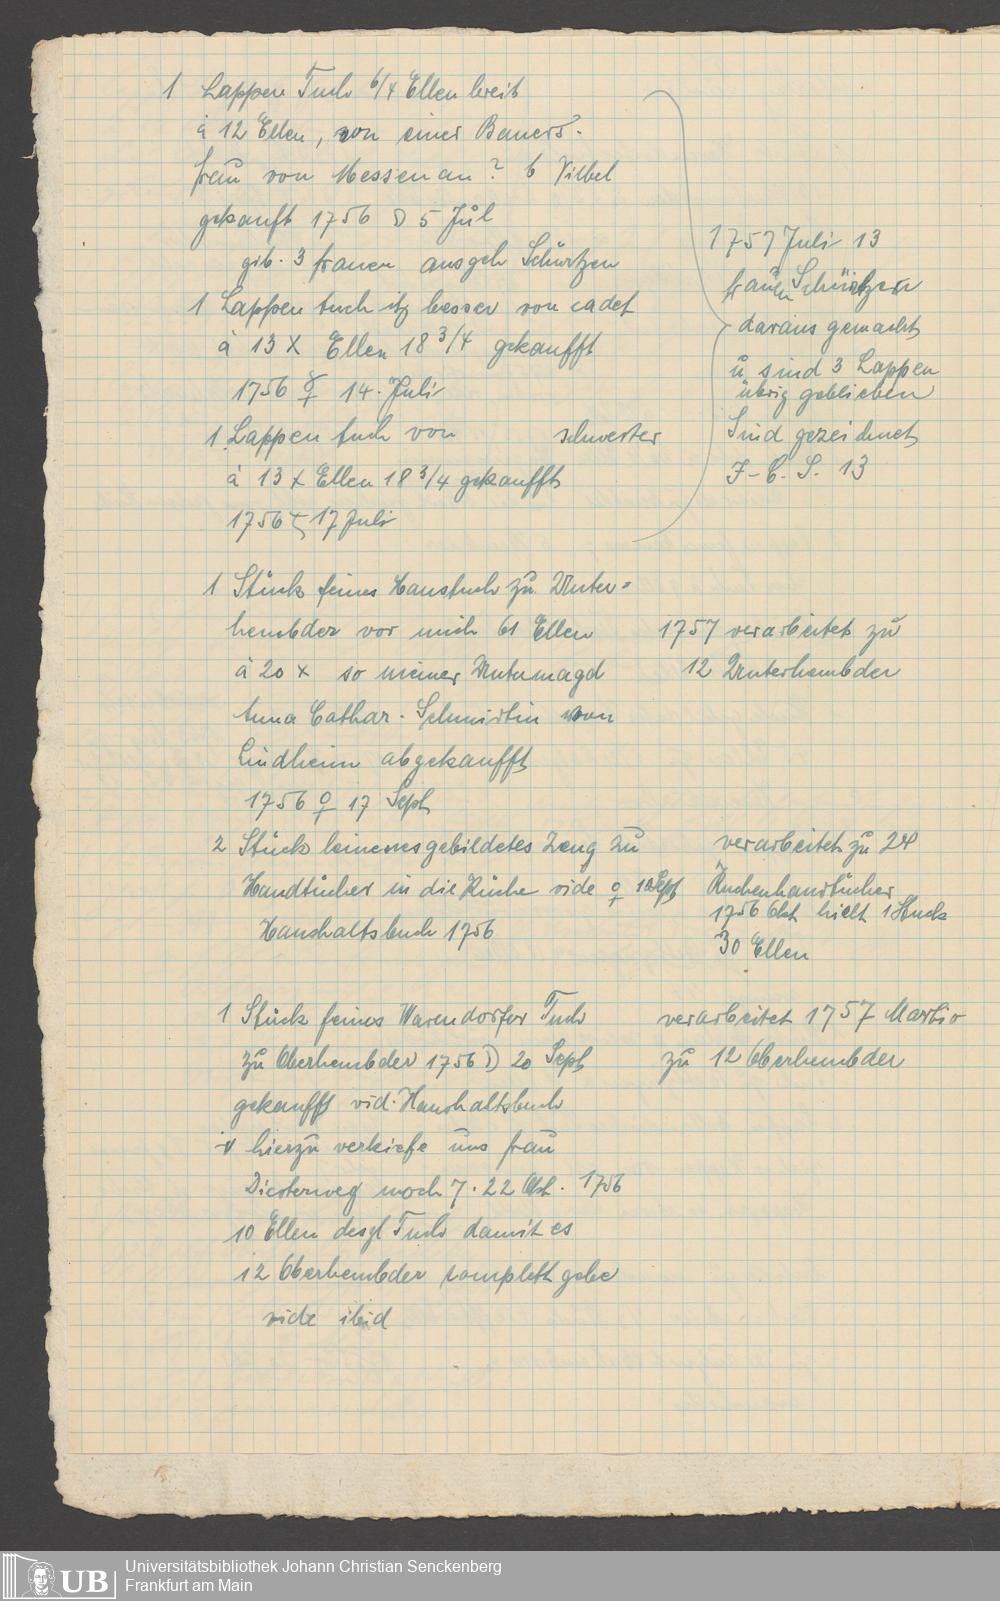 1 Lappen Tuch 6/4 Ellen breit
à 12 Ellen, von einer Bauers-
frau von Messenau? b Vilbel
gekauft 1756 ☽ 5 Jul
gib. 3 frauen ausgeh Schürtzen
1 Lappen tuch itz besser von eadet
à 13 X Ellen 18 3/4 gekaufft
1756 ☿ 14. Juli
1 Lappen tuch von schwester
à 13 x Ellen 18 3/4 gekaufft
1756 ♄ 17 Juli
1757 Juli 13
frauen Schürtzen
daraus gemacht
u sind 3 Lappen
übrig geblieben
Sind gezeichnet
J-C. S. 13
1 Stück feines Haustuch zu Unter=
hembder vor mich 61 Ellen
à 20 x so meiner Untermagd
Anna Cathar. Schmidtin von
Lindheim abgekaufft
1756 ♀ 17 Sept
1757 verarbeitet zu
12 Unterhembder
2 Stück leinenes gebildetes Zeug zu
Handtücher in die Küche vide ♀ 10 Sept
Haushaltsbuch 1756
verarbeitet zu 24
Kuchenhandtücher
1756 Okt hielt 1 Stück
30 Ellen
1 Stück feines Warendorfer Tuch
zu Oberhembder 1756 ☽ 20 Sept
gekaufft vid. Haushaltsbuch
hierzu verkiefe uns frau
Diesterweg noch 7. 22 Okt. 1756
10 Ellen desgl Tuch damit es
12 Oberhembder komplett gebe
vide ibid
verarbeitet 1757 Martio
zu 12 Oberhembder
UB
Universitätsbibliothek Johann Christian Senckenberg
Frankfurt am Main